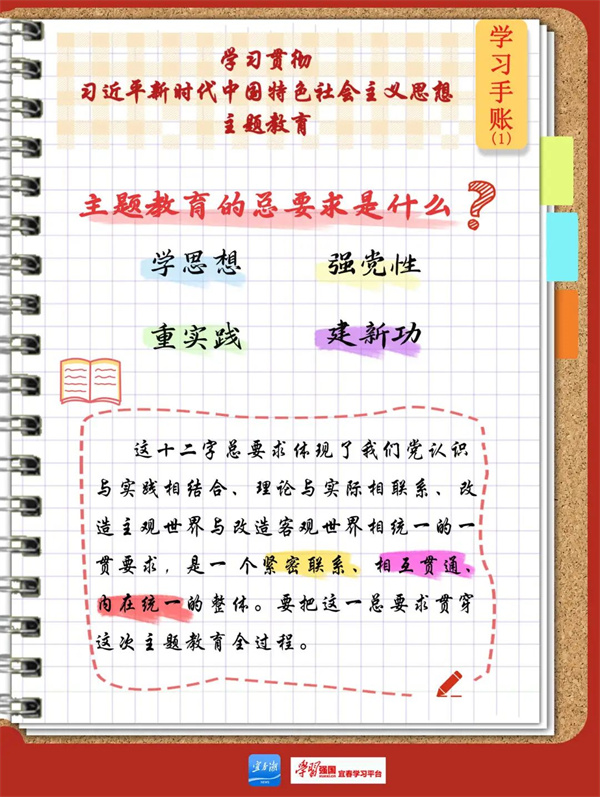 学习贯彻
习近平新时代中国特色社会主义思想
主题教育
学习手账
(1)
主题教育的总要求是什么?
学思想 强党性
重实践 建新功
这十二字总要求体现了我们党认识
与实践相结合、理论与实际相联系、改
造主观世界与改造客观世界相统一的一
贯要求，是一个紧密联系、相互贯通、
内在统一的整体。要把这一总要求贯穿
这次主题教育全过程。
学习强国 宜春学习平台